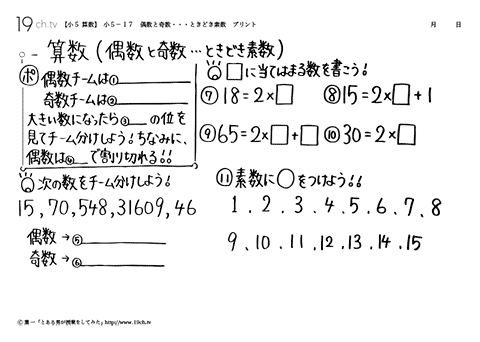 19ch.tv 【小5算数】 小5-17 偶数と奇数・・・ときどき素数 プリント 月 日
算数(偶数と奇数…ときどき素数)
ポ 偶数チームは①
奇数チームは②
大きい数になったら③ の位を
見てチーム分けしよう!ちなみに、
偶数は④ で割り切れる!!
次の数をチーム分けしよう!
15,70,548,31609,46
偶数→⑤
奇数→⑥
□に当てはまる数を書こう!
⑦18=2×□ ⑧15=2×□+1
⑨65=2×□+□ ⑩30=2×□
⑪素数に○をつけよう!!
1.2.3.4.5.6.7.8
9.10.11.12.13.14.15
© 葉一「とある男が授業をしてみた」http://www.19ch.tv